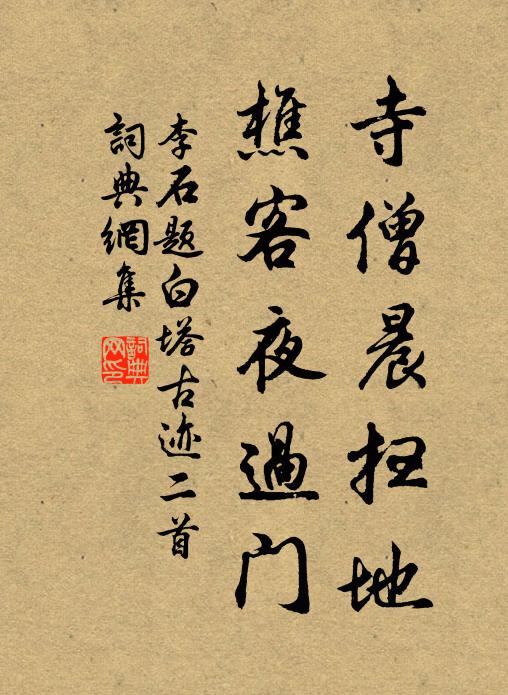 寺僧晨扫地
樵客夜過门
李石题白塔古迹二首
詞典網集
詞典网印